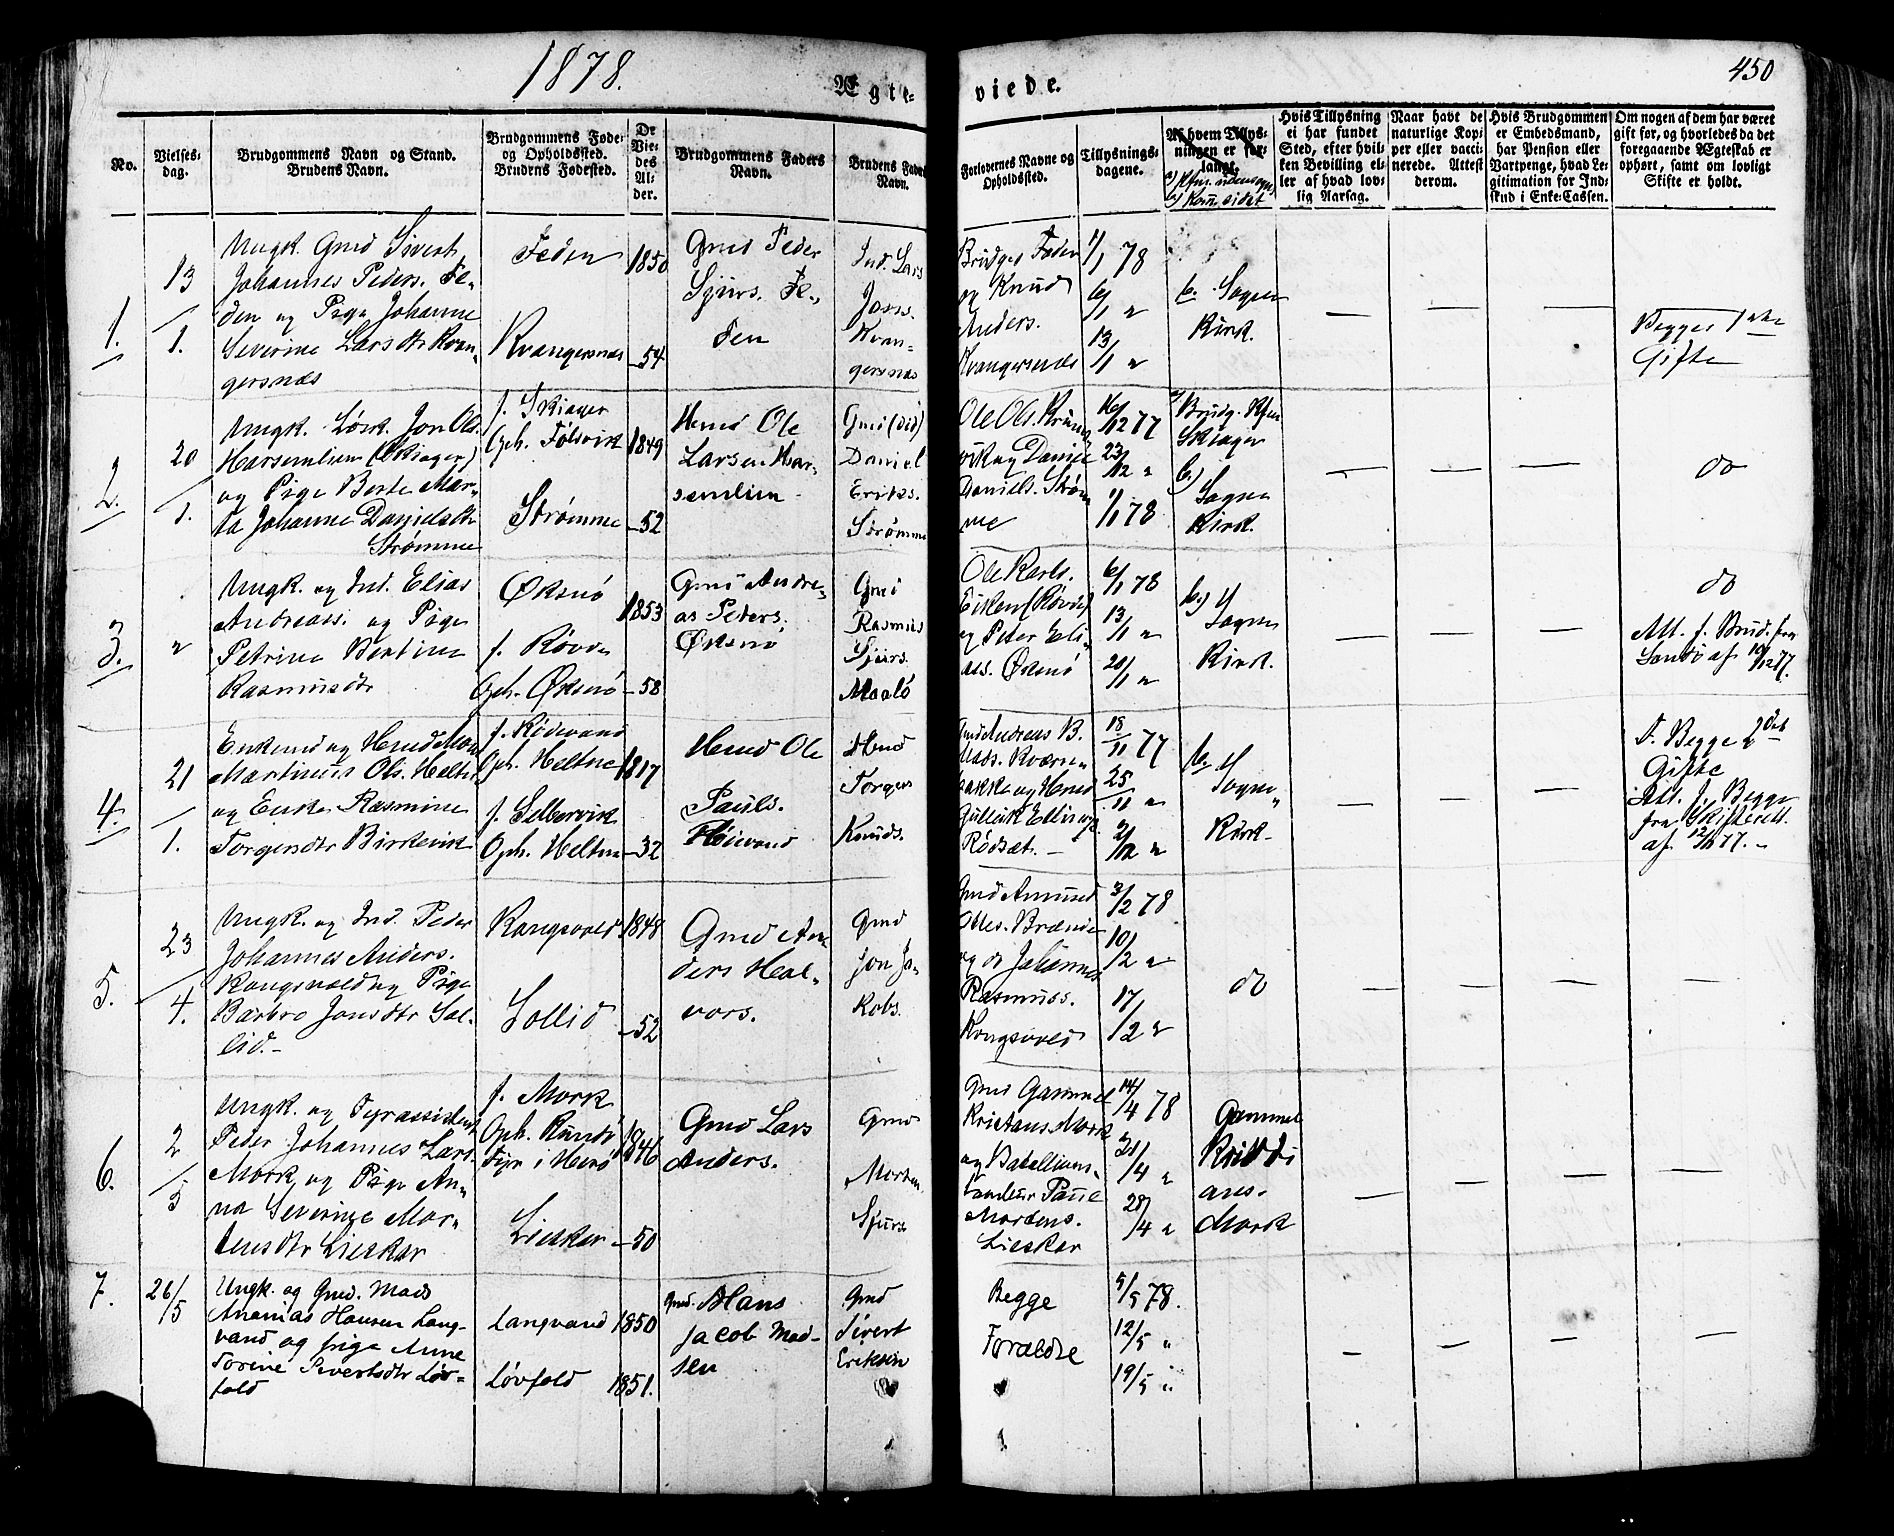 1878.
450
Ægte-
viede.
No.
Vielses-
dag.
Brudgommens Navn og Stand.
Brudens Navn.
Brudgommens Føde-
og Opholdssted.
Brudens Fødested.
De
Vie-
des
Al-
der.
Brudgommens Faders
Navn.
Brudens Fad
Navn.
Forlovernes Navne og
Opholdssted.
Tillysnings-
dagene.
Af hvem Tillys-
ningen er for-
langt.
Hvis Tillysning
ei har fundet
Sted, efter hvil-
ken Bevilling el-
ler af hvad lov-
lig Aarsag.
Naar havt de
naturlige Kop-
per eller vacci-
nerede. Attest
derom.
Hvis Brudgommen
er Embedsmand,
har Pension eller
Vartpenge, hvad Le-
gitimation for Ind-
skud i Enke-Cassen.
Om nogen af dem har været
gift før, og hvorledes da det
foregaaende Ægteskab er
ophørt, samt om lovligt
Skifte er holdt.
1.
13
/
1.
Ungk. Gmd Sivert
Johannes Peders. Fe-
den og Pige Johanne
Severine Larsdtr Kvan-
gersnæs
Feden
Kvangersnæs
1850
- 54
Gmd Peder
Sjurs. Fe-
den
Ind. Lars
Jons.
Kvan-
gersnæs
Brudgs Fader
og Knud
Anders.
Kvangersnæs
1/1 78
6/1 "
13/1 "
b. Sogne
Kirk.
Begge 1ste
Gifte
2.
20
/
1.
Ungk. Løsk. Jon Ols.
Harsemlien (Skiager)
og Pige Berte Mar-
ta Johanne Danielsdtr
Strømme
f. Skiager
Oph. Følsvik
Strømme
1849
- 52
Hmd Ole
Larsen Har-
semlien
Gmd (död)
Daniel
Eriks.
Strømme
Ole Ols.
vik og Daniel
Daniels. Strøm
me
16/12 77
23/12 "
1/1 78
a) Brudg.
Skiager
b.) Sogne
Kirk.
do
3.
"
Ungk. og Ind. Elias
Andreass. og Pige
Petrine Bertine
Rasmusdtr
Øksnö
f. Røvde
Oph. Øksnö
1853
- 58
Gmd Andre-
as Peders.
Øksnö
Gmd
Rasmus
Sjurs.
Maalö
Ole Karls.
Eiken (Røvde)
og Peter Eli-
ass. Øksnö
6/1 78
13/1 "
20/1 "
b.) Sogne
Kirk.
do
Att. f. Brud. fra
Sandö af 10/12 77.
4.
21
/
1.
Enkemd og Hmd
Martinus Ols. Heltne
og Enke Rasmine
Torgersdtr Birkevik
f. Rødevand
Oph. Heltne
f. Selbervik
Oph. Heltne
1817
- 32
Hmd Ole
Pauls.
Hmd
Torger
Knuds.
Gmd Andreas B.
Mads. Kværne-
bakke og Hmd
Gullik Ellings.
Rødset. -
18/11 77
25/11 "
2/12 "
b. Sogne
Kirk.
F. Begge 2det
Gifte
Att. f. Begge
fra Skifterett.
af 12/11 77. -
5.
23
/
4.
Ungk. og Ind. Peder
Johannes Anders.
Kongsvold og Pige
Barbro Jonsdtr Sol-
lid. -
Kongsvold
Sollid
1848
- 52
Gmd An-
ders Hal-
vors.
Gmd
Jon Ja-
kobs.
Gmd Amund
Olles. Brænde
og do Johannes
Rasmuss.
Kongsvold
3/2 78
10/2 "
17/2 "
do
6.
2
/
5
Ungk. og Fyrassistent
Peder Johannes Lars.
Mork og Pige An-
na Severine Mor-
tensdtr Lieskar
f. Mork
Oph. Rundö
Fyr i Herö
Lieskar
1846
- 50
Gmd Lars
Anders.
Gmd
Morten
Sjurs.
Gmd Gammel
Kristians. Mork
og Batallions-
tambur Paul
Mortens.
Lieskar
14/4 78
21/4 "
28/4 "
Gammel
Kristi
ans.
Mork
7.
26/5
Ungk. og Gmd. Mads
Ananias Hansen Lang-
vand og pige Anne
Torine Sivertsdtr Løv-
fold
Langvand
Løvfold
1850
1851.
Gmd. Hans
Jacob Mad-
sen
Gmd
Sivert
Eriksen
Begge
Foræeldre
5/5 78.
12/5 "
19/5 "